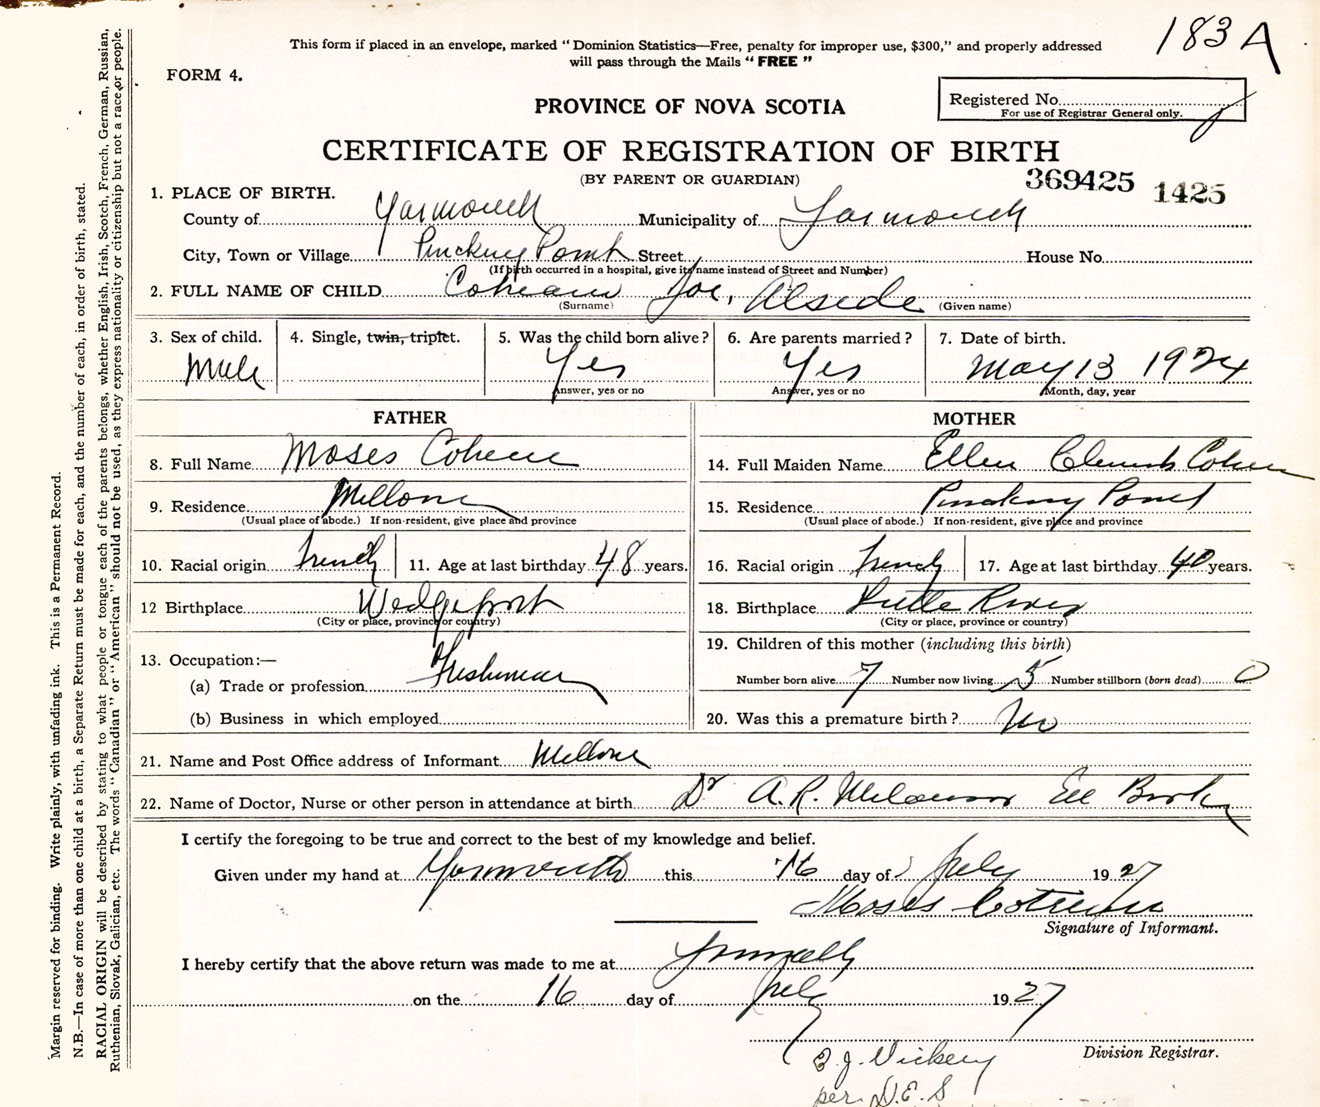 183A
This form if placed in an envelope, marked "Dominion Statistics—Free, penalty for improper use, $300," and properly addressed
will pass through the Mails "FREE"
FORM 4.
Registered No.
For use of Registrar General only.
PROVINCE OF NOVA SCOTIA
CERTIFICATE OF REGISTRATION OF BIRTH
(BY PARENT OR GUARDIAN)
369425 1425
1. PLACE OF BIRTH.
County of Yarmouth Municipality of Yarmouth
City, Town or Village Pinckney Point Street House No.
(If birth occurred in a hospital, give its name instead of Street and Number)
2. FULL NAME OF CHILD Joe, Alsede
(Surname) (Given name)
3. Sex of child. 4. Single, twin, triplet. 5. Was the child born alive? 6. Are parents married? 7. Date of birth.
Male Yes Yes May 13 1924
Answer, yes or no Answer, yes or no Month, day, year
FATHER MOTHER
8. Full Name Moses 14. Full Maiden Name Ellen
9. Residence 15. Residence Pinckney Point
(Usual place of abode.) If non-resident, give place and province (Usual place of abode.) If non-resident, give place and province
10. Racial origin French 11. Age at last birthday 48 years. 16. Racial origin French 17. Age at last birthday 40 years.
12 Birthplace Wedgeport 18. Birthplace River
(City or place, province or country) (City or place, province or country)
19. Children of this mother (including this birth)
13. Occupation:—
(a) Trade or profession Fisherman Number born alive 7 Number now living 5 Number stillborn (born dead) 0
(b) Business in which employed 20. Was this a premature birth? No
21. Name and Post Office address of Informant
22. Name of Doctor, Nurse or other person in attendance at birth Dr A.R.
I certify the foregoing to be true and correct to the best of my knowledge and belief.
Given under my hand at Yarmouth this 16 day of July 1927
Moses
Signature of Informant.
I hereby certify that the above return was made to me at Yarmouth
on the 16 day of July 1927
Division Registrar.
Vickery
per. D.E.S
Margin reserved for binding. Write plainly, with unfading ink. This is a Permanent Record.
N.B.—In case of more than one child at a birth, a Separate Return must be made for each, and the number of each, in order of birth, stated.
RACIAL ORIGIN will be described by stating to what people or tongue each of the parents belongs, whether English, Irish, Scotch, French, German, Russian,
Ruthenian, Slovak, Galician, etc. The words "Canadian" or "American" should not be used, as they express nationality or citizenship but not a race or people.